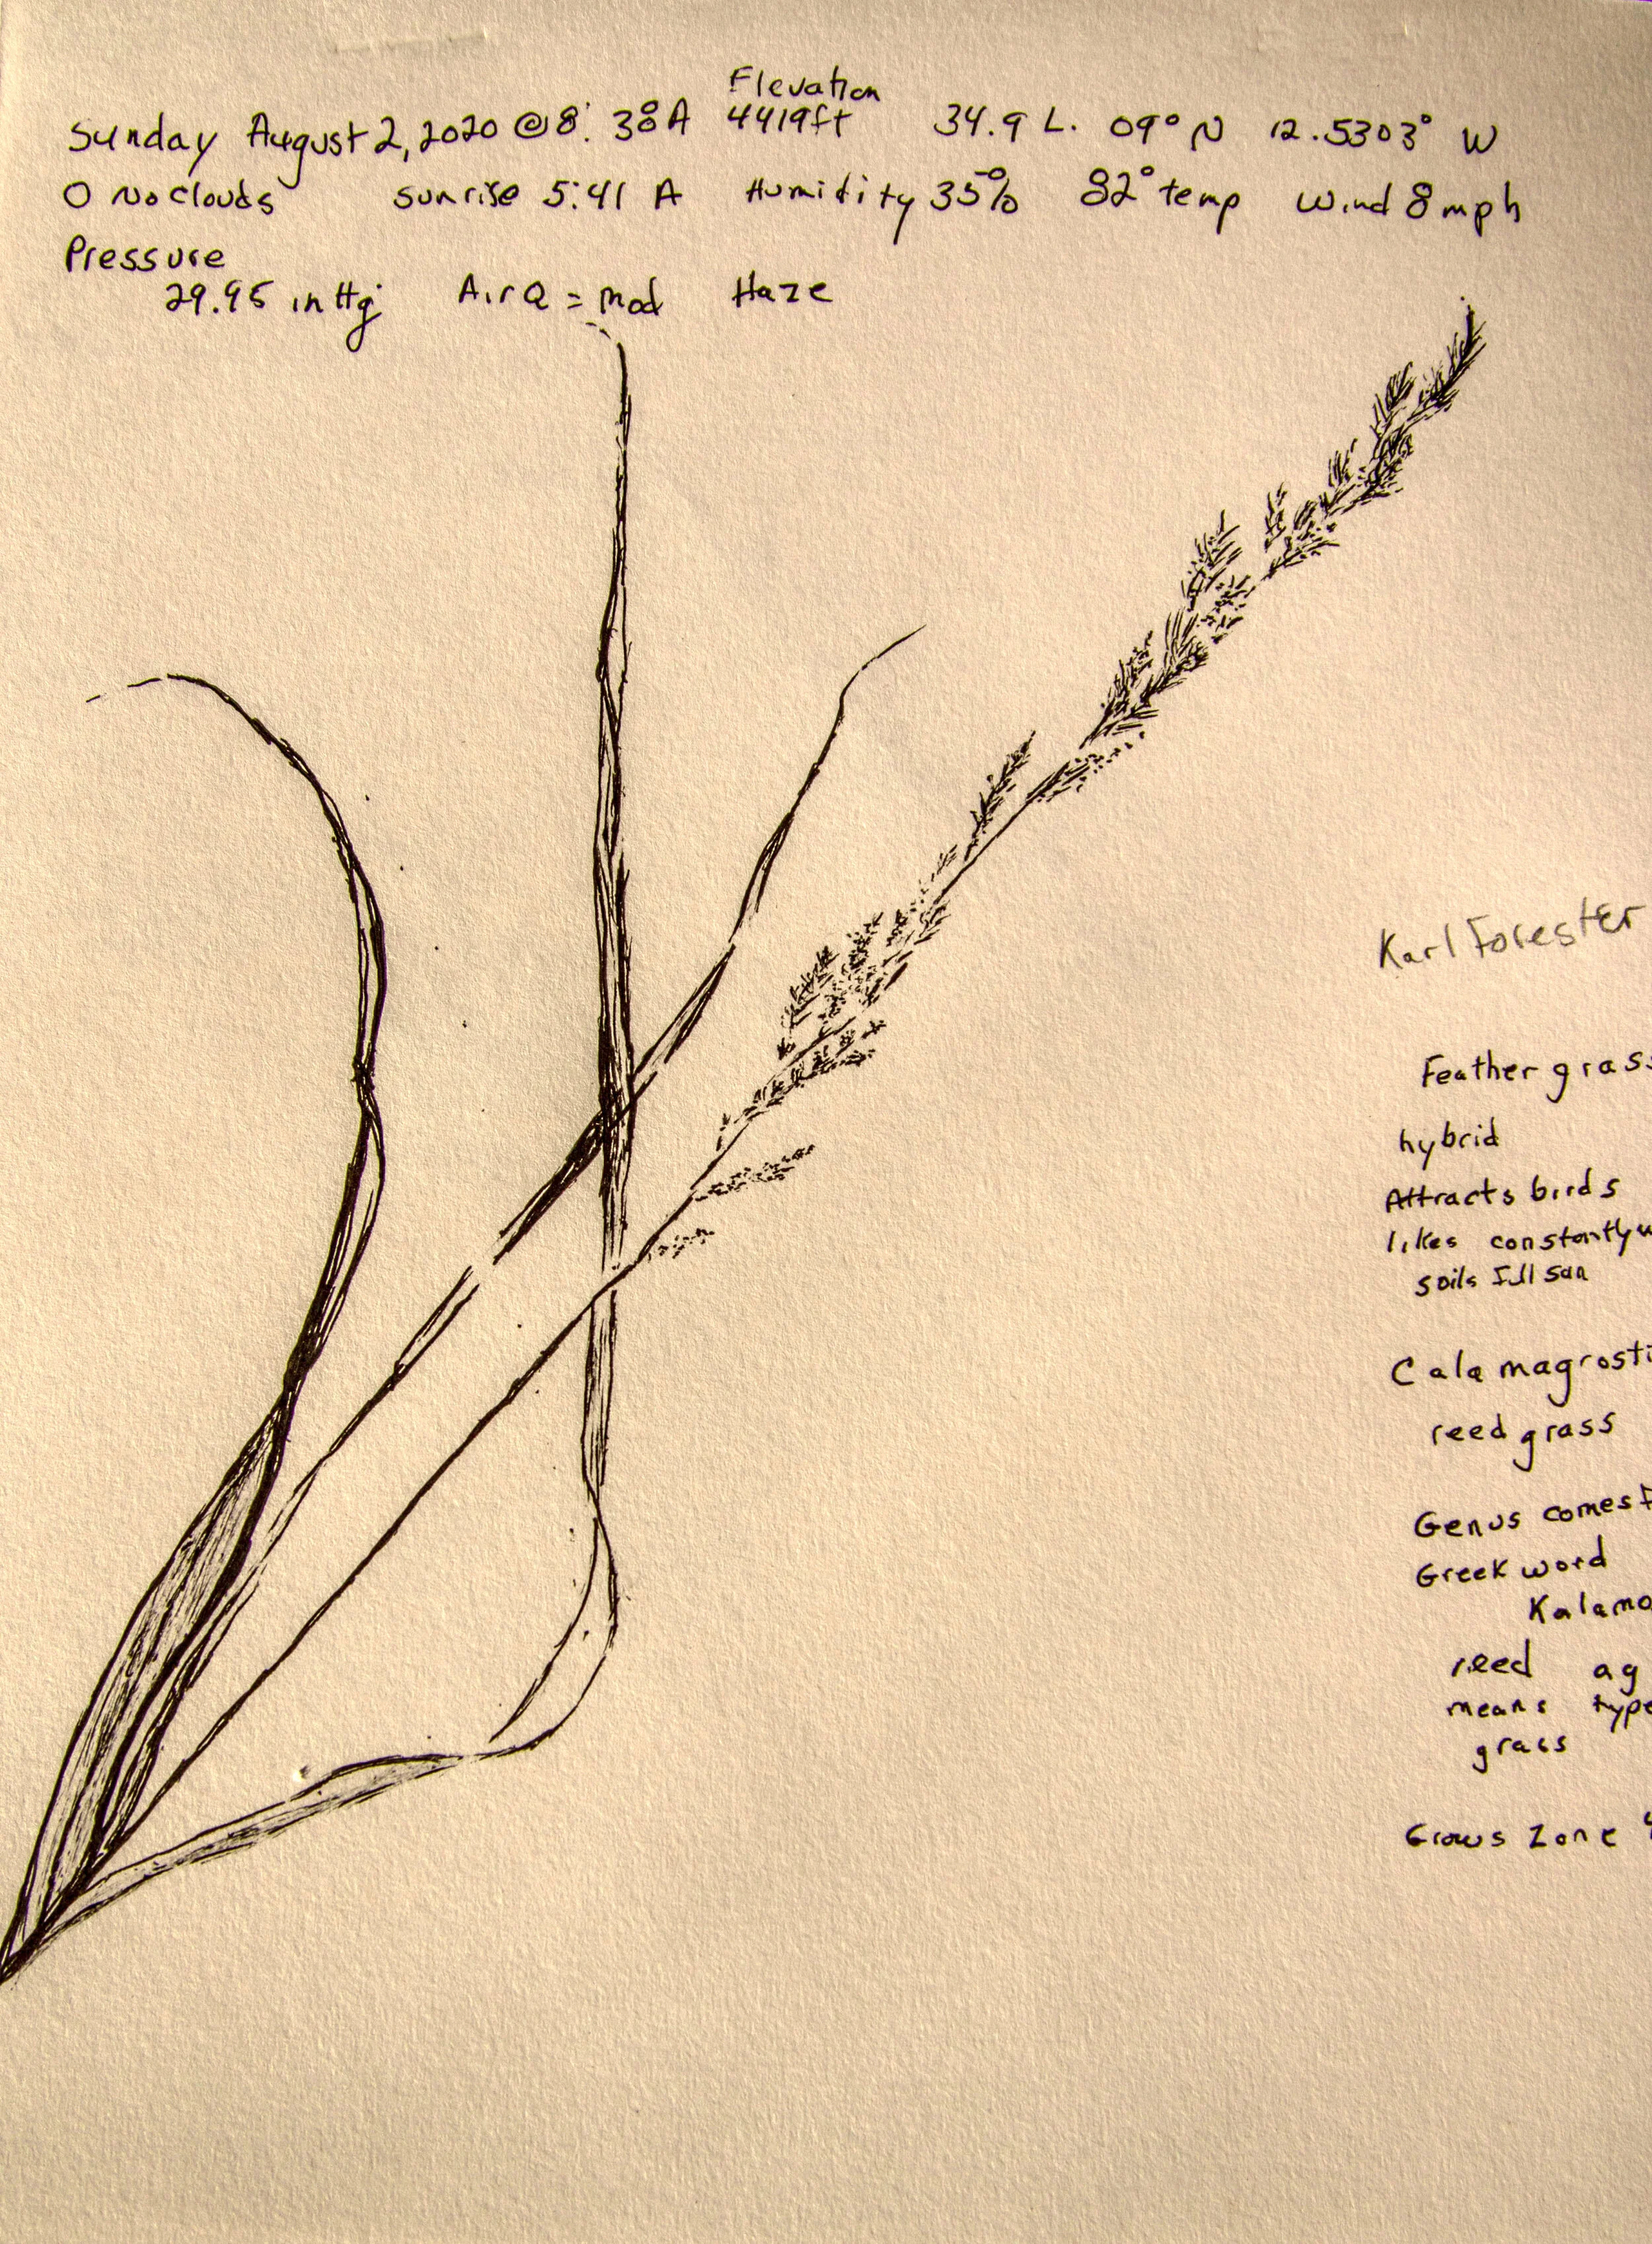 Elevation
Sunday August 2, 2020 @ 8:38 A 4419ft 34.9 L. 09° N 12.5303° W
0 No clouds sunrise 5:41 A Humidity 35% 82° temp Wind 8 mph
Pressure
29.95 in Hg AirQ = mod Haze
Karl Forester
Feather grass
hybrid
Attracts birds
likes constantly w
soils full sun
Calamagrosti
reed grass
Genus comes f
Greek word
Kalamo
reed ag
means type
grass
Grows Zone 4